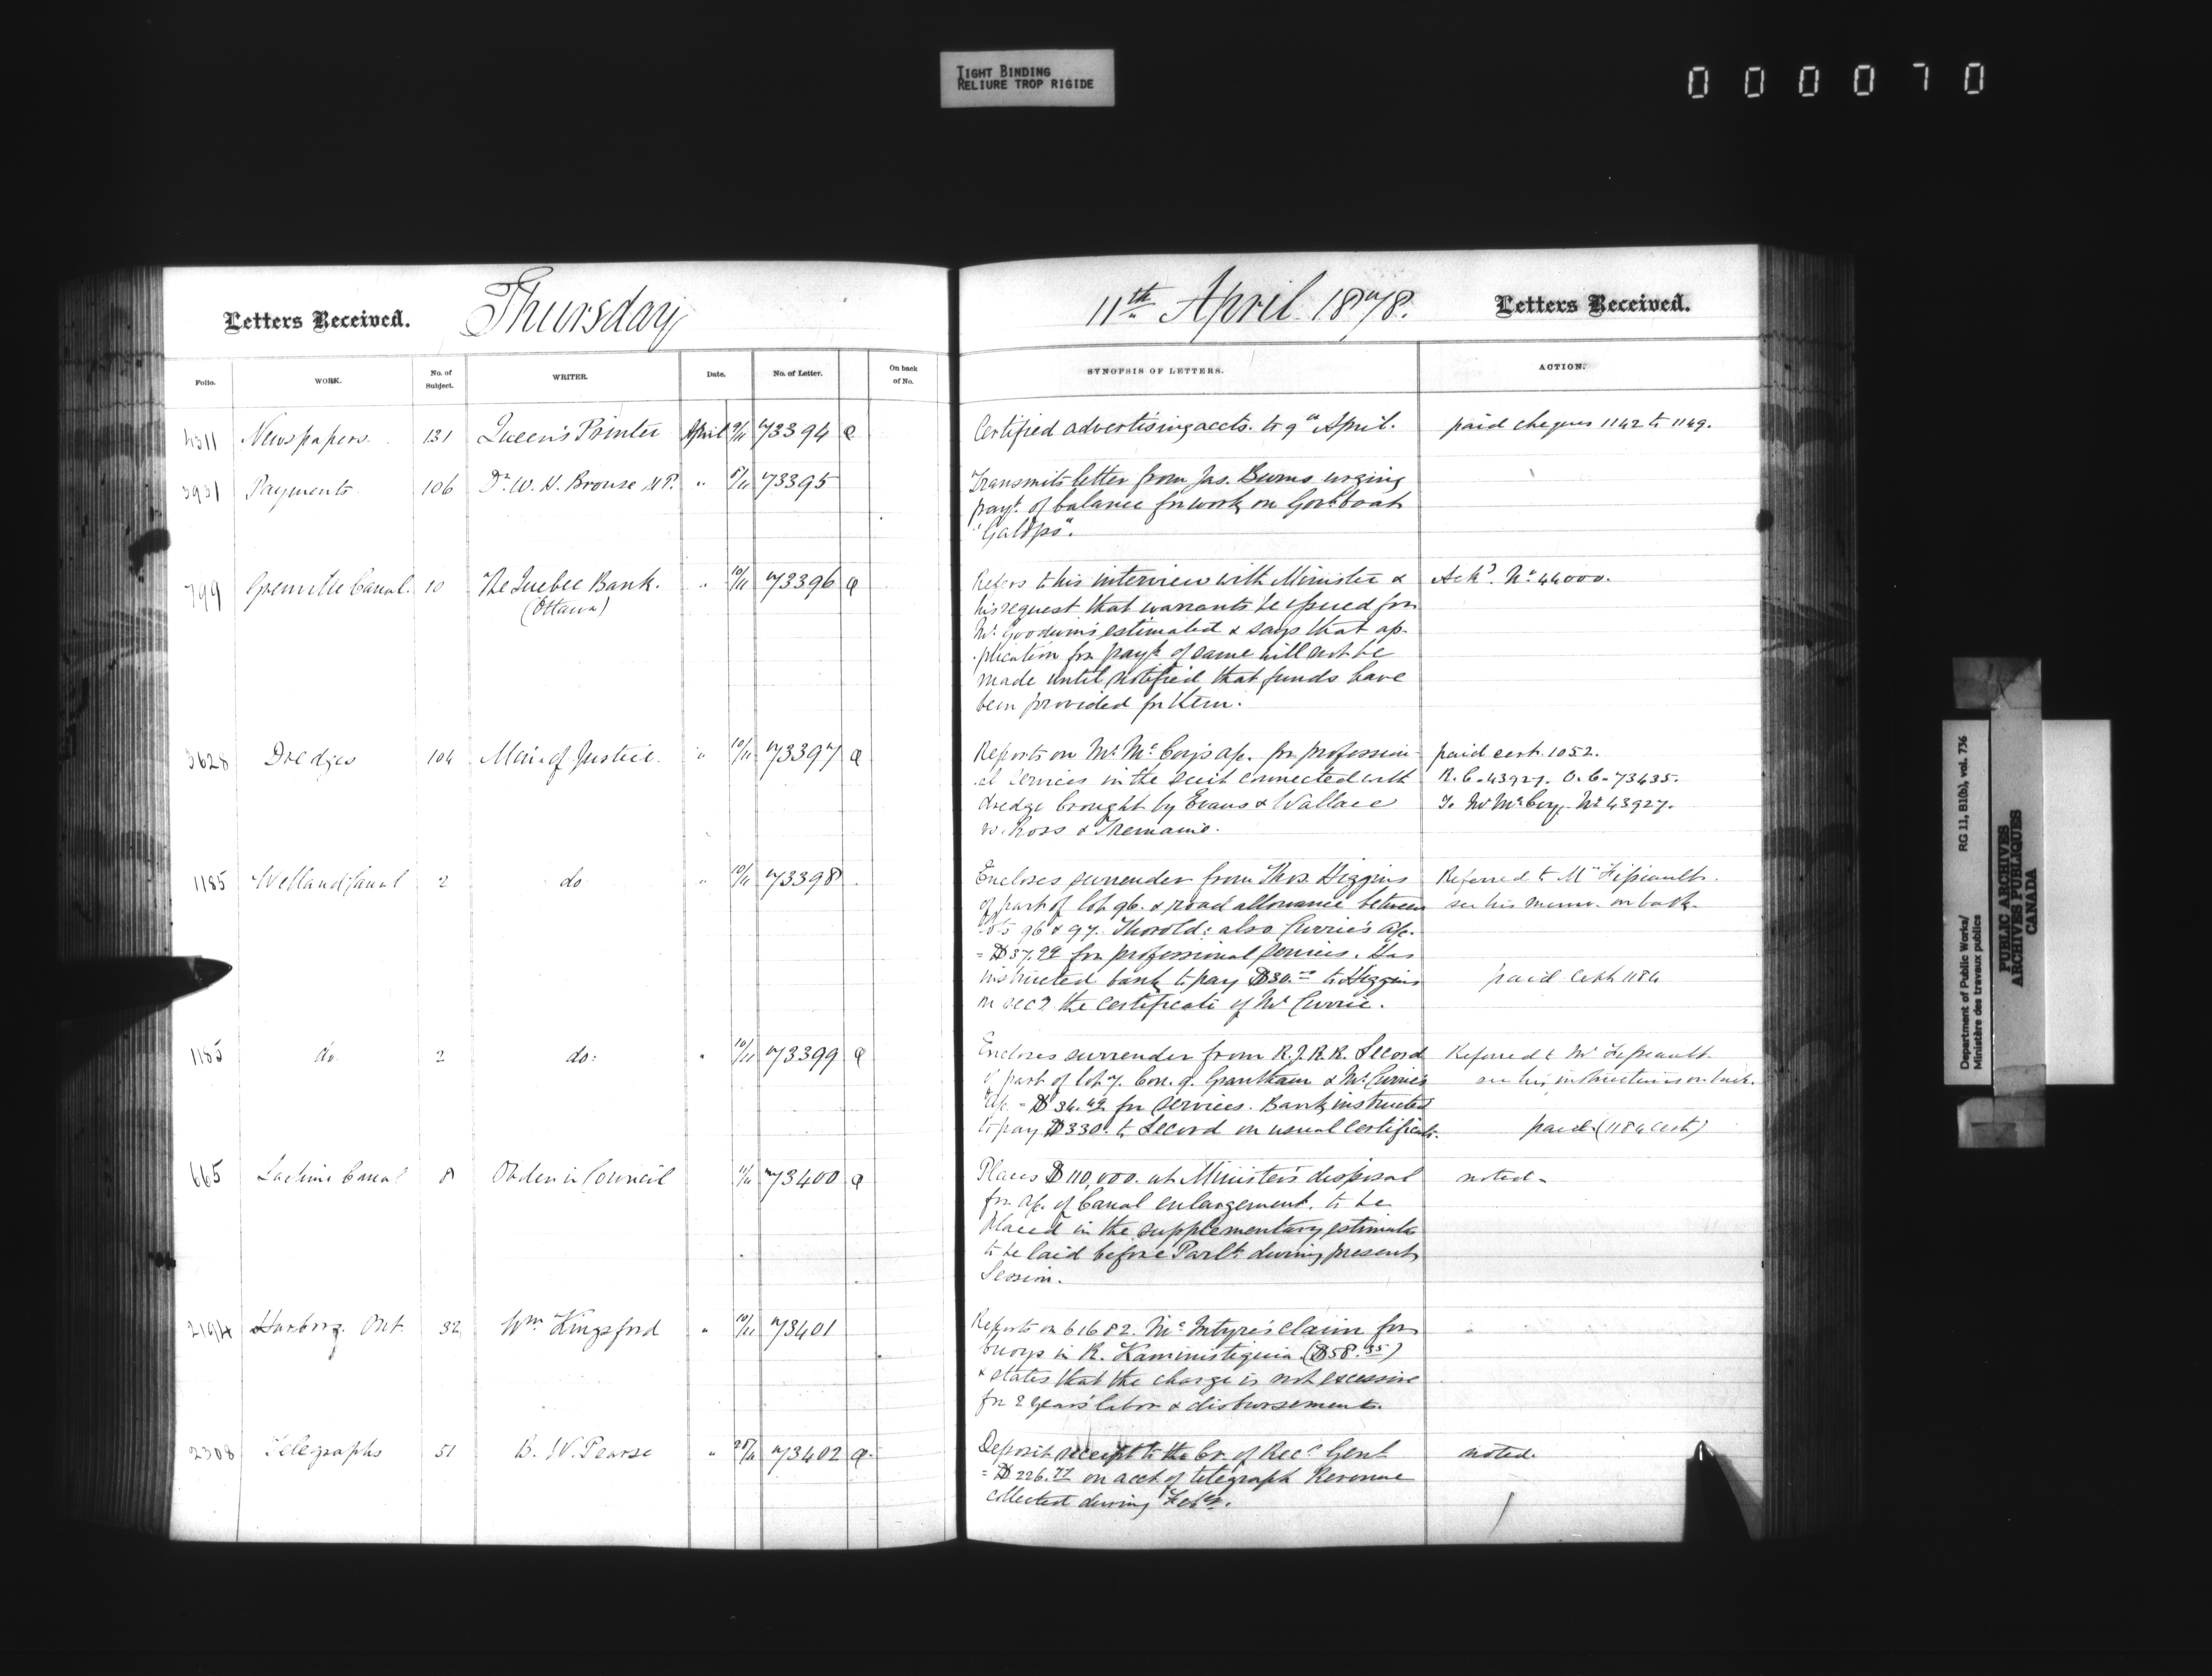 TIGHT BINDING
RELIURE TROP RIGIDE
000070
Letters Received. Thursday 11th April 1878. Letters Received.
Folio. WORK. No. of Subject. WRITER. Date. No. of Letter. On back of No. SYNOPSIS OF LETTERS. ACTION.
4311 Newspapers 131 Queen's Printer April 9/11 73394 Q Certified advertising accts. to 9th April. paid cheques 1142 to 1149.
3931 Payments 106 Dr. W. H. Brouse M.P. " 8/11 73395 Transmits letter from Jas. Burns urging
payt. of balance for work on Govt. boat
"Galops".
799 Grenville Canal. 10 The Quebec Bank. " 10/11 73396 Q Refers to his interview with Minister & Ackd. No. 44000.
(Ottawa) his request that warrants be issued for
Mr. Goodwin's estimated & says that ap-
plication for payt. of same will not be
made until notified that funds have
been provided for them.
3628 Dredges 104 Min. of Justice " 10/11 73397 Q Reports on Mr. McCoy's a/c. for profession- paid cert. 1052.
al services in the suit connected with R.C. 43927. O.C. 73435.
dredge brought by Evans & Wallace To Mr. McCoy, No. 43927.
vs. Ross & Tremaine.
1185 Welland Canal 2 do " 10/11 73398 Encloses surrender from Thos. Higgins Referred to Mr
of part of lot 96. & road allowance between see his memo. on back.
lots 96 & 97. Thorold: also Currie's a/c.
= $37.99 for professional services. Has
instructed bank to pay $30.00 to Higgins paid Cert 1184
on recg. the certificate of Mr. Currie.
1185 do. 2 do: " 10/11 73399 Q Encloses surrender from R.J.R.R. Secord Referred to Mr
of part of lot 7. Con. 9. Grantham & Mr. Currie's see his instructions on back.
a/c. = $34.49 for services. Bank instructed
to pay $330. to Secord on usual certificate. paid. (1184 cert)
665 Lachine Canal 8 Order in Council 11/11 73400 Q Places $110,000. at Minister's disposal noted.
for a/c. of Canal enlargement. to be
placed in the supplementary estimate
to be laid before Parlt. during present
Session.
2194 Harbors. Ont. 32 Wm. Kingsford " 10/11 73401 Reports on 61682. McIntyre's claim for
buoys in R. Kaministiquia ($58.35)
& states that the charge is not excessive
for 2 years' labor & disbursement.
2308 Telegraphs 51 B. W. Pearse " 73402 Q. Deposit receipt to the Cr. of Recr. Genl noted.
= $226.77 on acct. of telegraph Revenue
collected during Feby.
Department of Public Works/ RG 11, B1(b), vol. 736
Ministère des travaux publics
PUBLIC ARCHIVES
ARCHIVES PUBLIQUES
CANADA